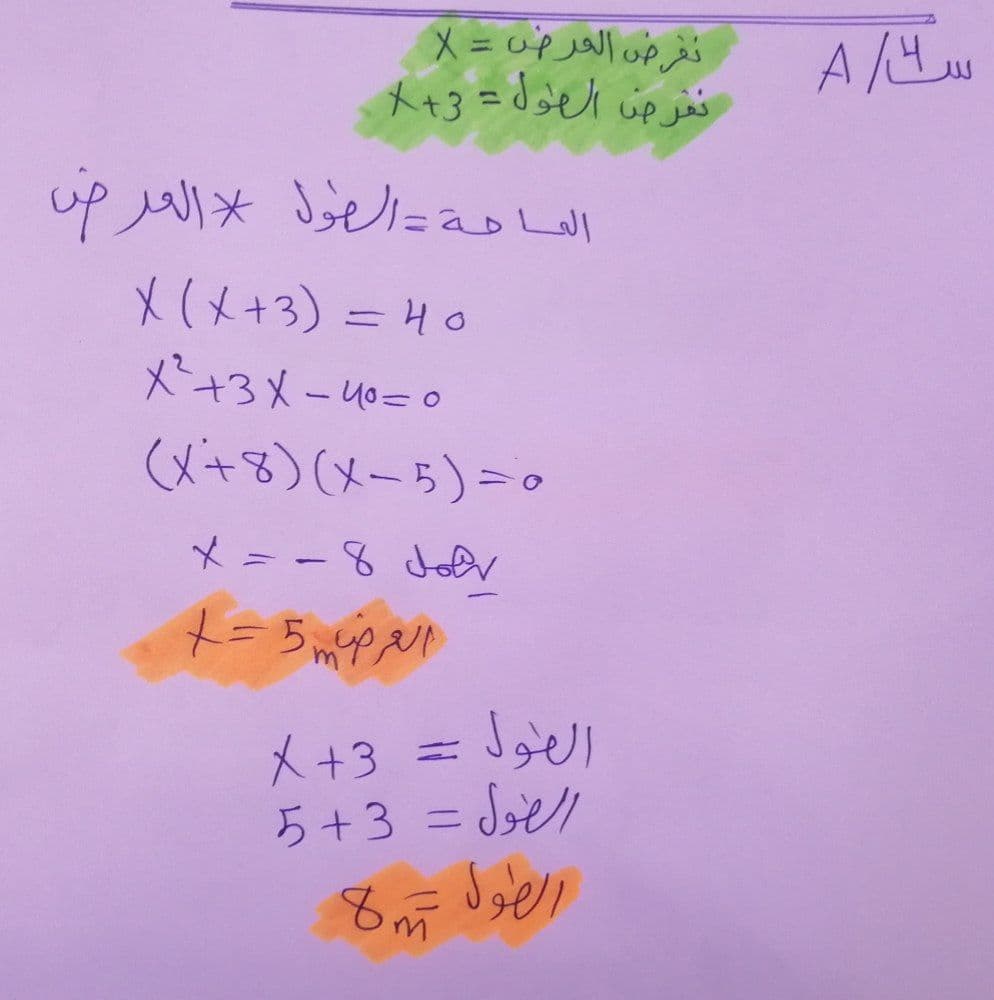 س4/ A
نفرض العرض = X
نفرض الطول = X+3
المساحة = الطول * العرض
X(X+3) = 40
X²+3X-40=0
(X+8)(X-5)=0
X = -8 يهمل
X = 5m العرض
الطول = X+3
الطول = 5+3
الطول = 8m